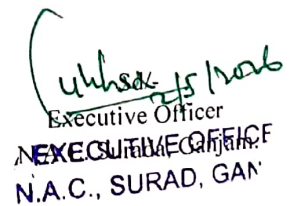 Sd/-
2/5/2026
Executive Officer
N.A.C. Surada, Ganjam.
EXECUTIVE OFFICE
N.A.C., SURAD, GAN